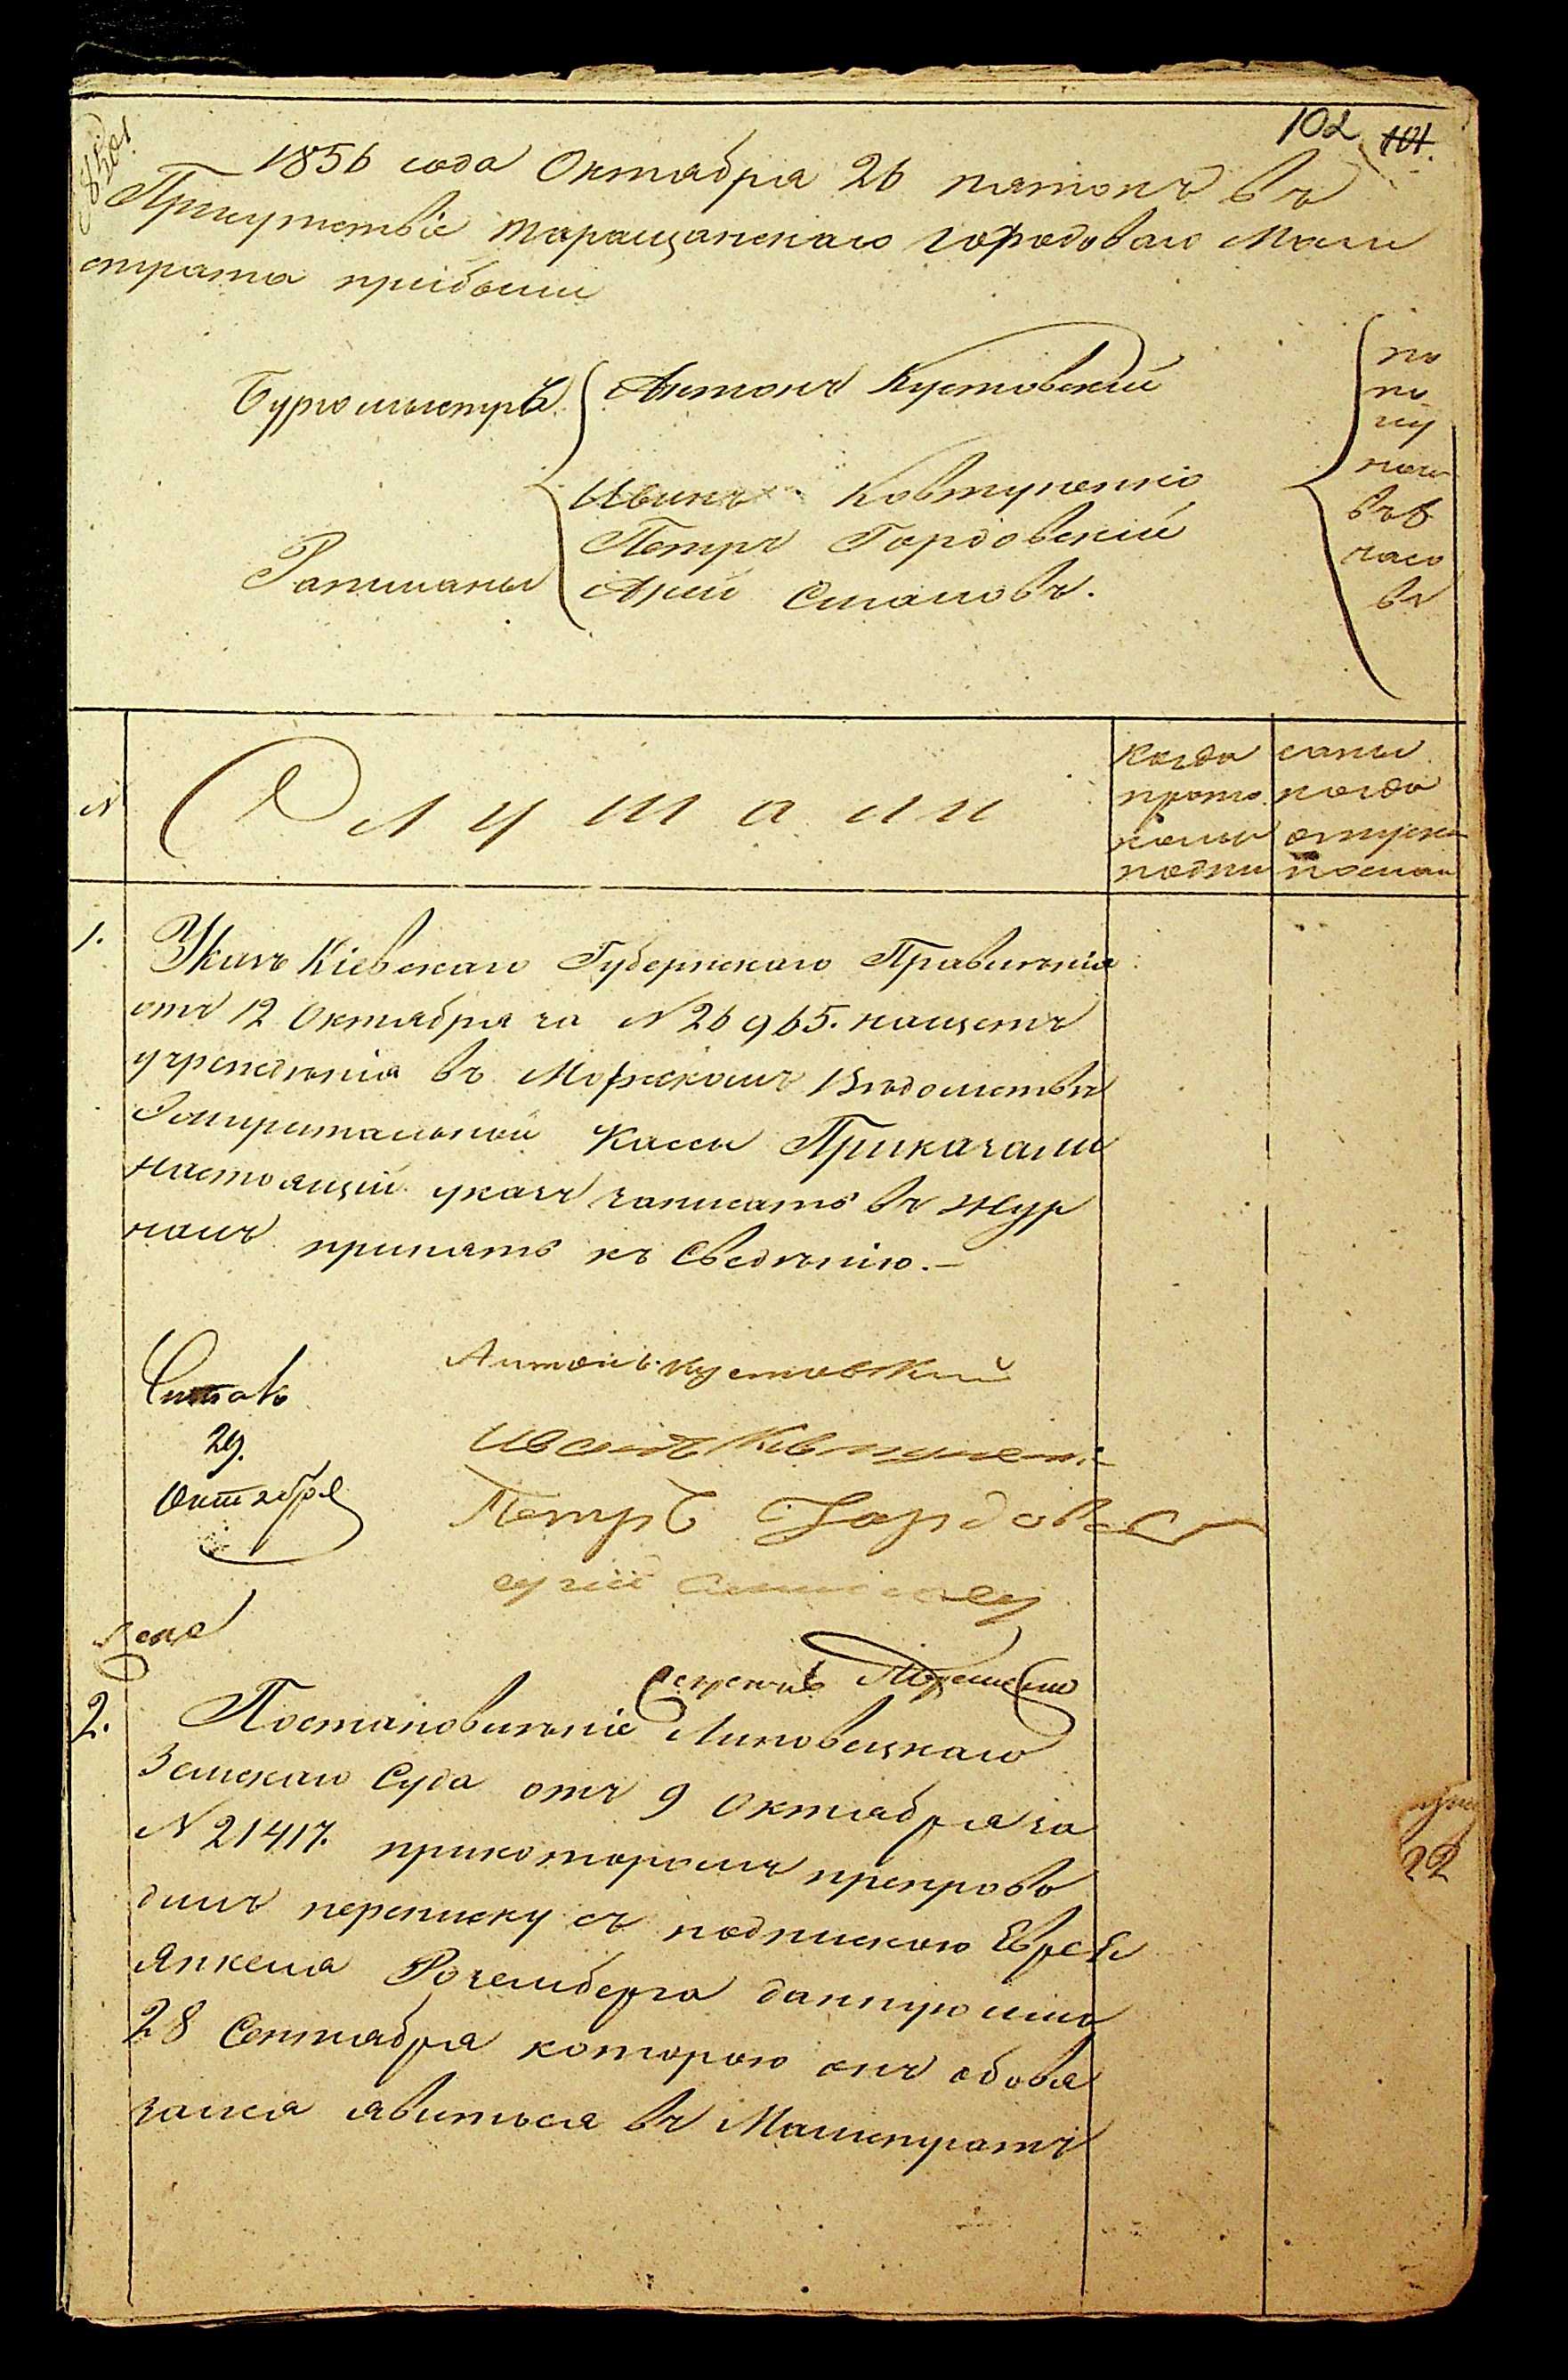 102 101.
1856 года Октября 26 пятокъ въ
Присутствіе Таращанскаго городоваго Маги
страта прибыли
Бургомыстръ Антонъ Кустовскій
Иванъ Ковтуненко
Петръ Гордовскій
Ратманы
по
по
лу
ночи
въ 8
часо
въ
N
Слушали
Когда
прото
колы
подпи
саны
когда
отпуск
послан
1.
Указъ Кіевскаго Губернскаго Правленія
отъ 12 Октября за N 26965. насчетъ
учрежденія въ Морскомъ Вѣдомствѣ
Эмиритальной Кассы Приказали
настоящій указъ записать въ жур
налъ принять къ Сведѣнію.—
Антонъ Кустовскій
Читалъ
29.
Октября
Иванъ Ковтунен
Петръ Гордовс
Секретарь
2.
Постановленіе Липовецкаго
Земскаго Суда отъ 9 Октября за
N 21417. прикоторомъ препрово
дилъ переписку съ подпискою Еврея
Янкеля Роземберга данною имъ
28 Сентября которою онъ обовя
зался явиться въ Магистратъ
22